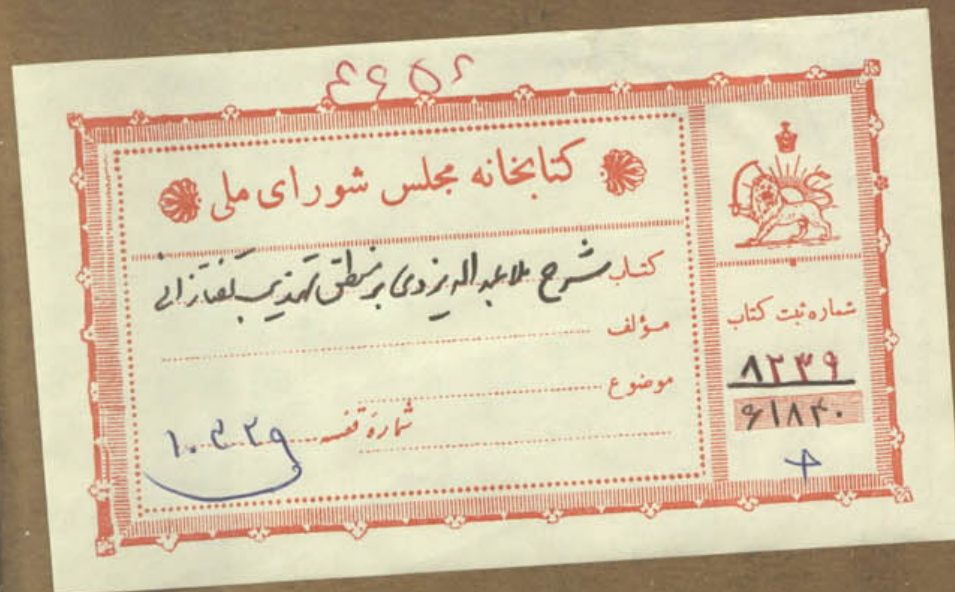 کتابخانه مجلس شورای ملی
کتاب شرح ملا عبداله یزدی بر منطق تهذیب تفتازانی
مؤلف
موضوع
شماره قفسه ۱۰۳۲۹
شماره ثبت کتاب
۸۲۳۹
۶۱۸۴۰